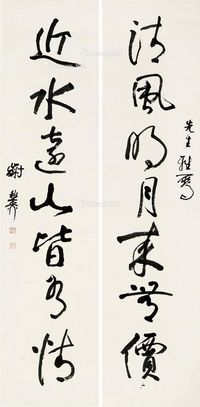 清風明月本無價
先生雅屬
近水遠山皆有情
謝稚